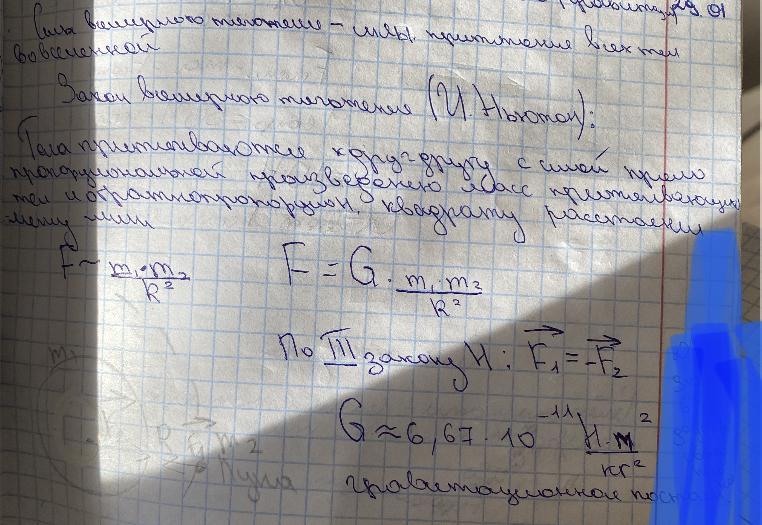 29.01
Сила всемирного тяготение - силы притяжение всех тел
во вселенной
Закон всемирного тяготения (И. Ньютон):
Тела притягиваются друг другу с силой прямо
пропорциональной произведению масс притягивающих
тел и обратнопропорцион. квадрату расстояния
между ними
F ~ m₁·m₂/R²
F = G · m₁·m₂/R²
По III закону Н: F₁ = -F₂
G ≈ 6,67·10⁻¹¹ Н·м²/кг²
m₁
m₂
Луна
гравитационное